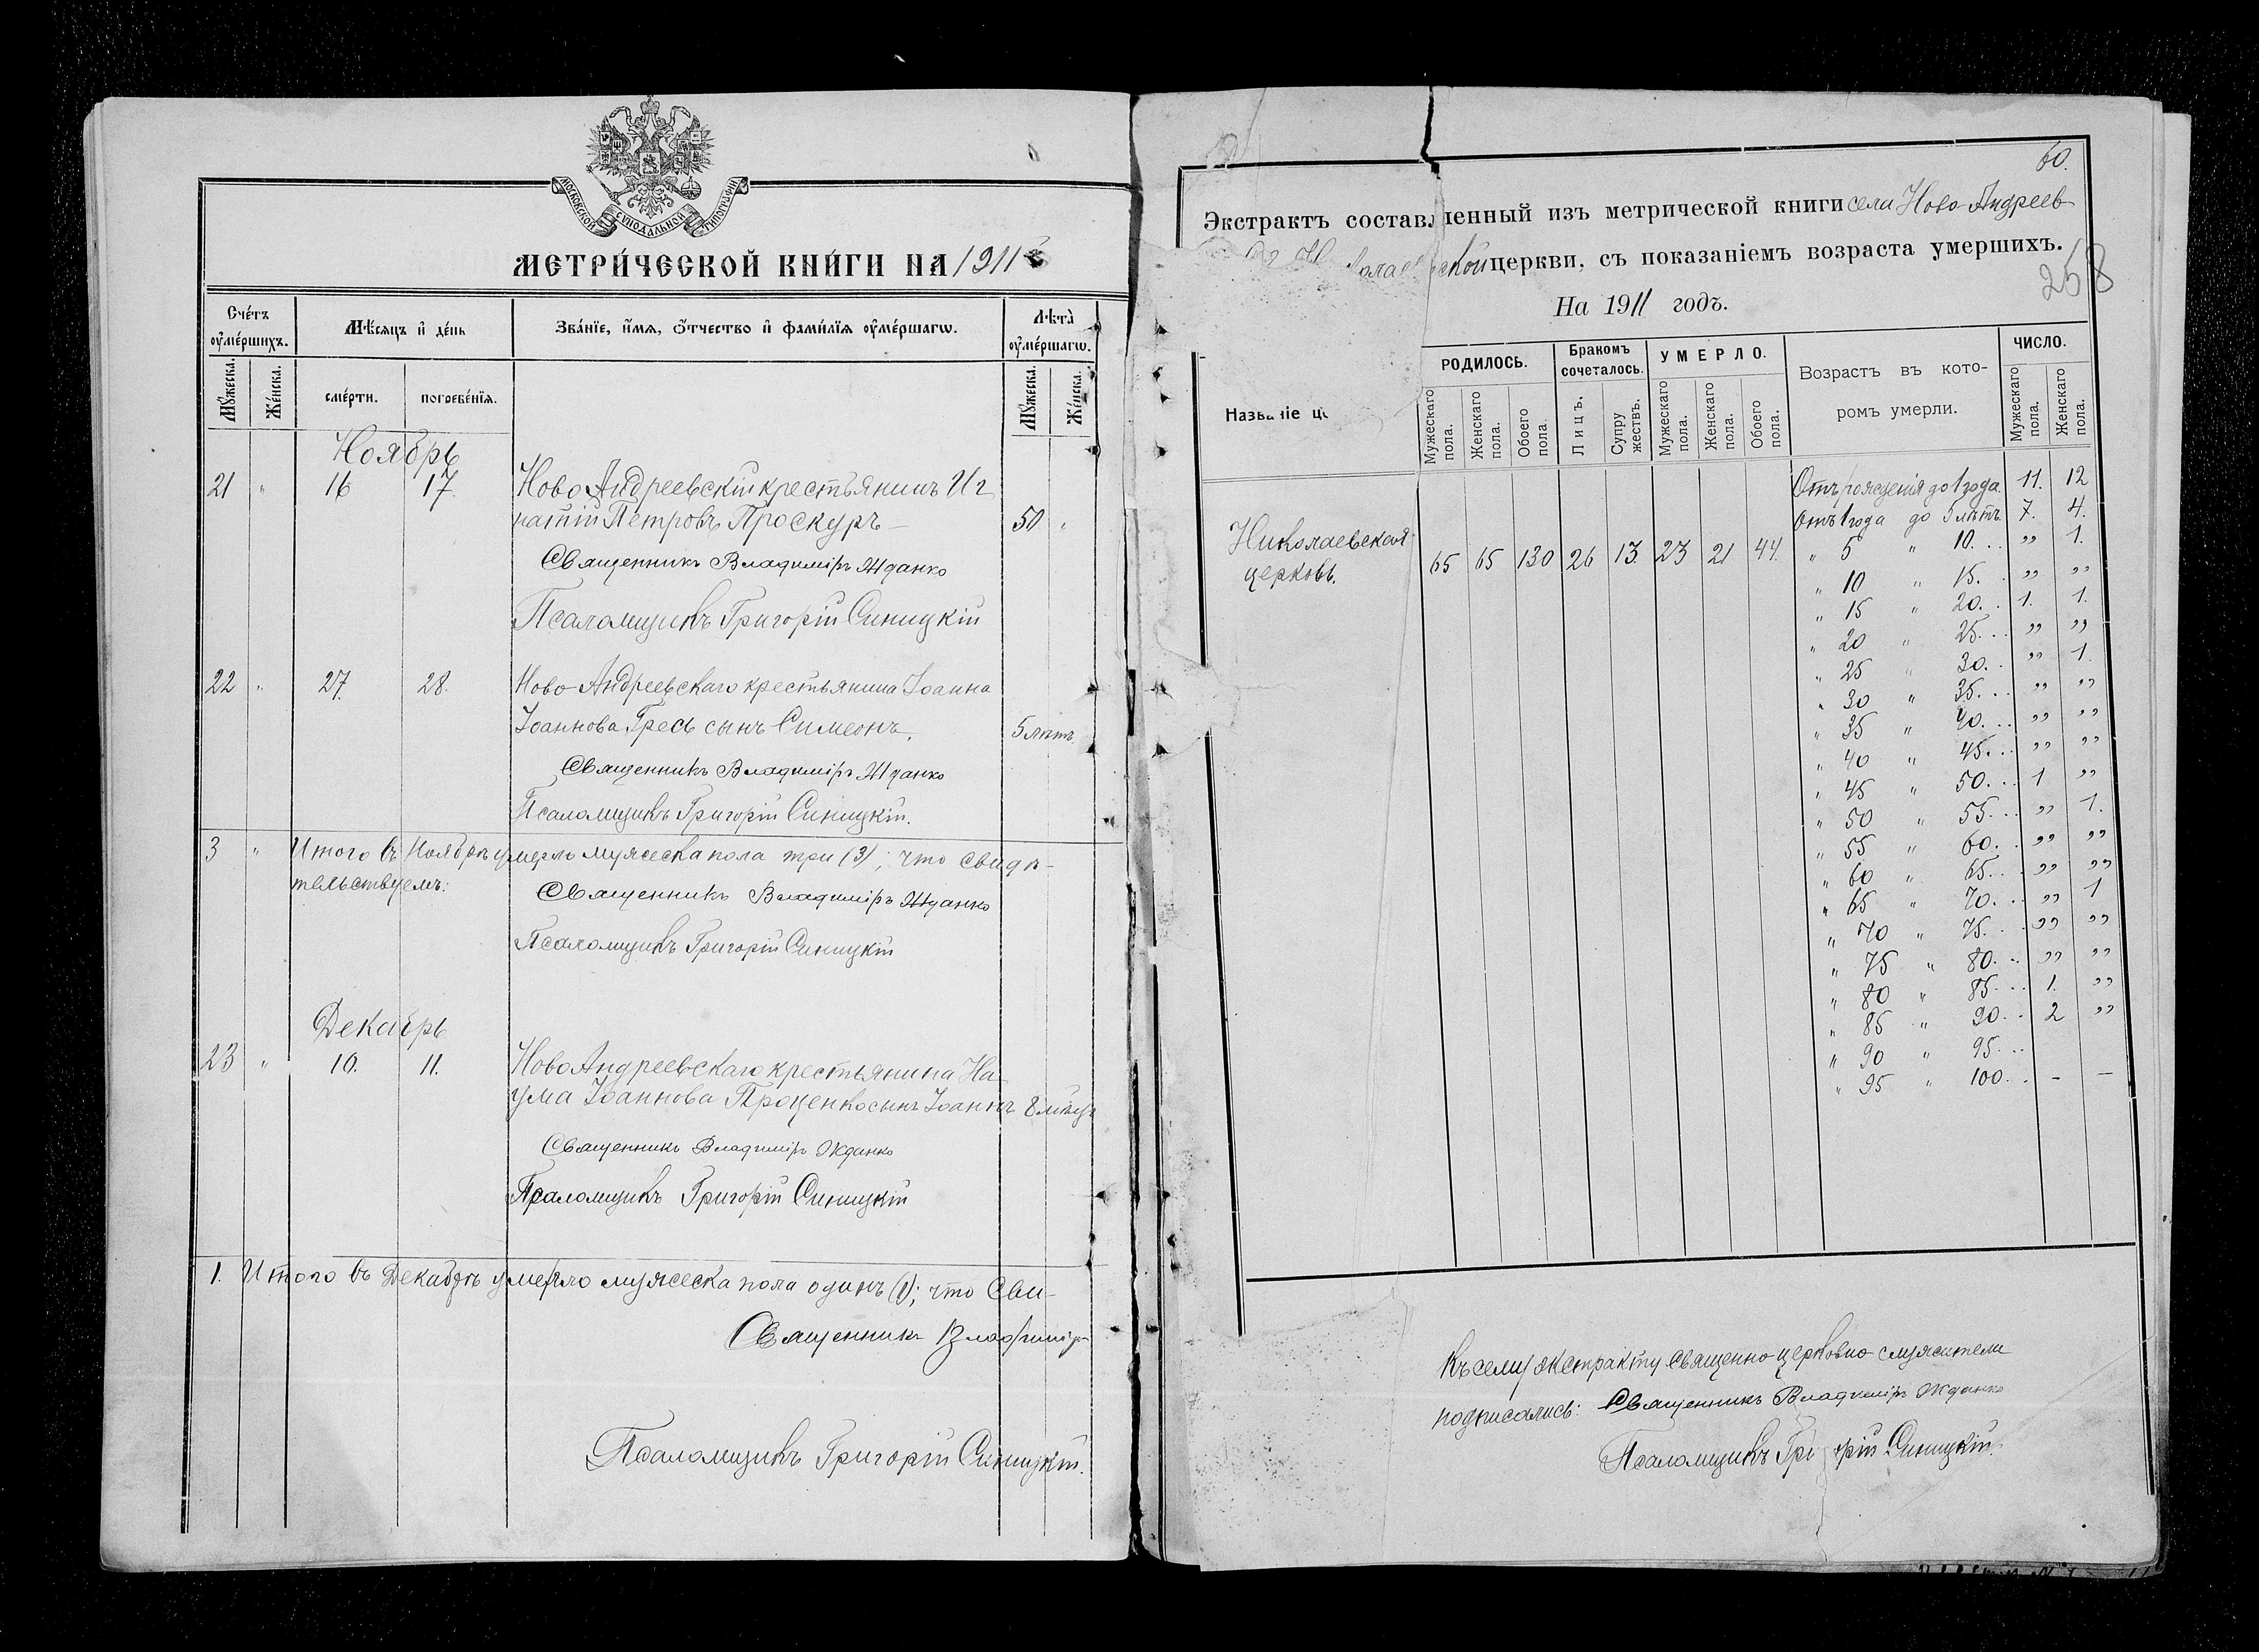 МОСКОВСКОЙ СѴНОДАЛЬНОЙ ТИПОГРАФІИ
МЕТРИ́ЧЕСКОЙ КНИ́ГИ НА 1911
Счéтъ оу҆мéршихъ.
Мѣ́сяцъ и҆ дéнь
Звáнїе, и҆́мя, ѻ҆́тчество и҆ фамѝлїя оу҆мéршагѡ.
Лѣтà оу҆мéршагѡ.
Мꙋ́жеска.
Жéнска.
смéрти.
погребéнїя.
Мꙋ́жеска.
Жéнска.
Ноябрь
21 " 16 17. Ново Андреевскій крестьянинъ Иг
натій Петровъ Проскуръ – 50 "
Священникъ Владиміръ Жданко
Псаломщикъ Григорій Синицкій
22 " 27. 28. Ново-Андреевскаго крестьянина Іоанна
Іоаннова Гресь сынъ Симеонъ. 5 лѣтъ
Священникъ Владиміръ Жданко
Псаломщикъ Григорій Синицкій.
3 " Итого въ Ноябрѣ умерло мужеска пола три (3); что свидѣ-
тельствуемъ:
Священникъ Владиміръ Жданко
Псаломщикъ Григорій Синицкій
Декабрь
23 " 10. 11. Ново Андреевскаго крестьянина На
ума Іоаннова Проценко сынъ Іоаннъ 8 мѣсяц
Священникъ Владиміръ Жданко
Псаломщикъ Григорій Синицкій
1. Итого въ Декабрѣ умерло мужеска пола одинъ (1); что сви-
Священникъ Владиміръ
Псаломщикъ Григорій Синицкій.
60.
Экстрактъ составленный изъ метрической книги села Ново-Андреев
церкви, съ показаніемъ возраста умершихъ.
258
На 1911 годъ.
Названіе
РОДИЛОСЬ.
Бракомъ сочеталось.
УМЕРЛО.
Возрастъ въ кото-
ромъ умерли.
ЧИСЛО.
Мужескаго пола.
Женскаго пола.
Обоего пола.
Лицъ.
Супружествъ.
Мужескаго пола.
Женскаго пола.
Обоего пола.
Мужескаго пола.
Женскаго пола.
Николаевская
церковь. 65 65 130 26 13. 23 21 44.
Отъ рожденія до 1 года. 11. 12
Отъ 1 года до 5 лѣтъ. 7. 4.
" 5 " 10... " 1.
" 10 " 15. . " "
" 15 " 20. . 1. 1.
" 20 " 25... " "
" 25 " 30. . " 1.
" 30 " 35... " "
" 35 " 40... " "
" 40 " 45... " "
" 45 " 50... 1 "
" 50 " 55... " 1.
" 55 " 60. . " "
" 60 " 65... " "
" 65 " 70... " 1
" 70 " 75... " "
" 75 " 80. .. " "
" 80 " 85... 1. "
" 85 " 90. . 2 "
" 90 " 95...
" 95 " 100. . - –
Къ сему экстракту священно-церковно-служители
подписались: Священникъ Владиміръ Жданко
Псаломщикъ Григорій Синицкій.